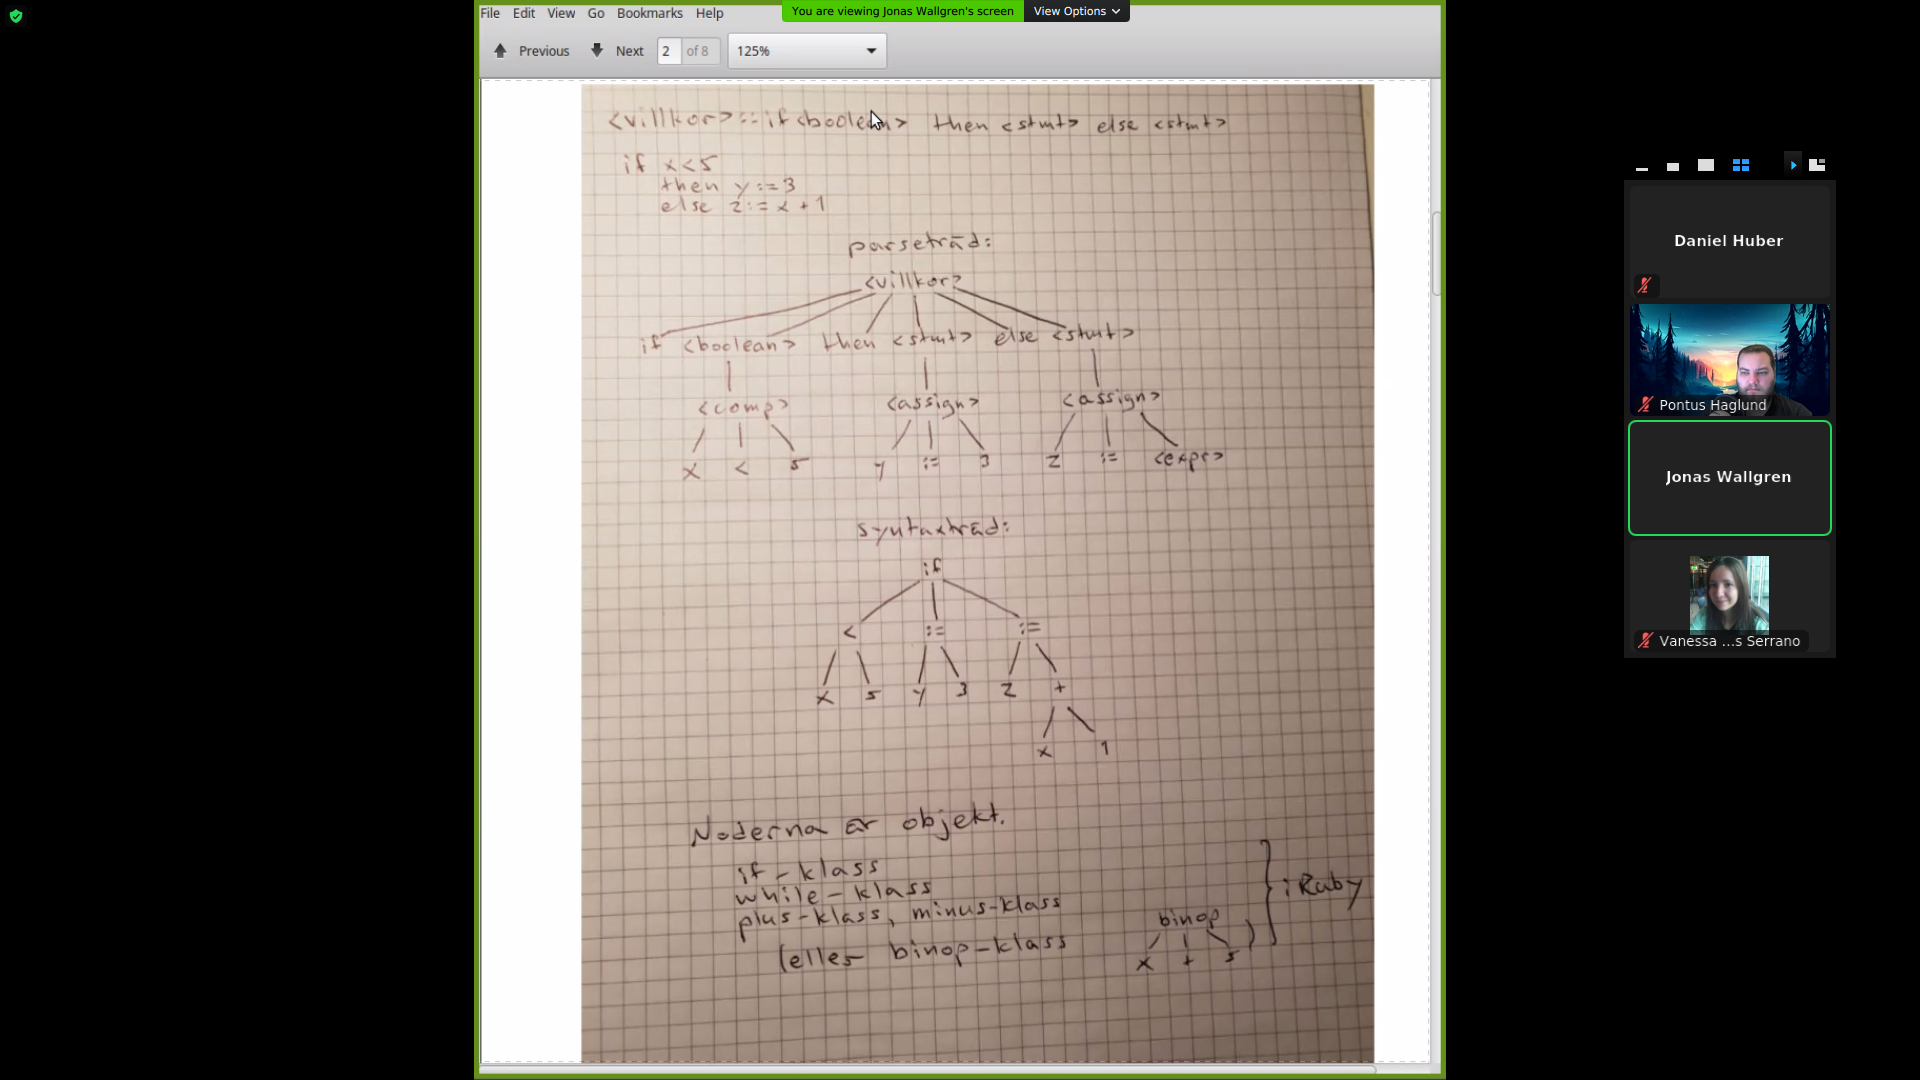 You are viewing Jonas Wallgren's screen View Options
File Edit View Go Bookmarks Help
Previous Next 2 of 8 125%
<villkor>::= if <boolean> then <stmt> else <stmt>
if x<5
then y:=3
else z:=x+1
parseträd:
<villkor>
if <boolean> then <stmt> else <stmt>
<comp> <assign> <assign>
x < 5 y := 3 z := <expr>
syntaxträd:
if
< := :=
x 5 y 3 z +
x 1
Noderna är objekt.
if-klass
while-klass
plus-klass, minus-klass
(eller binop-klass
binop
x + 5 )
} i Ruby
Daniel Huber
Pontus Haglund
Jonas Wallgren
Vanessa ...s Serrano